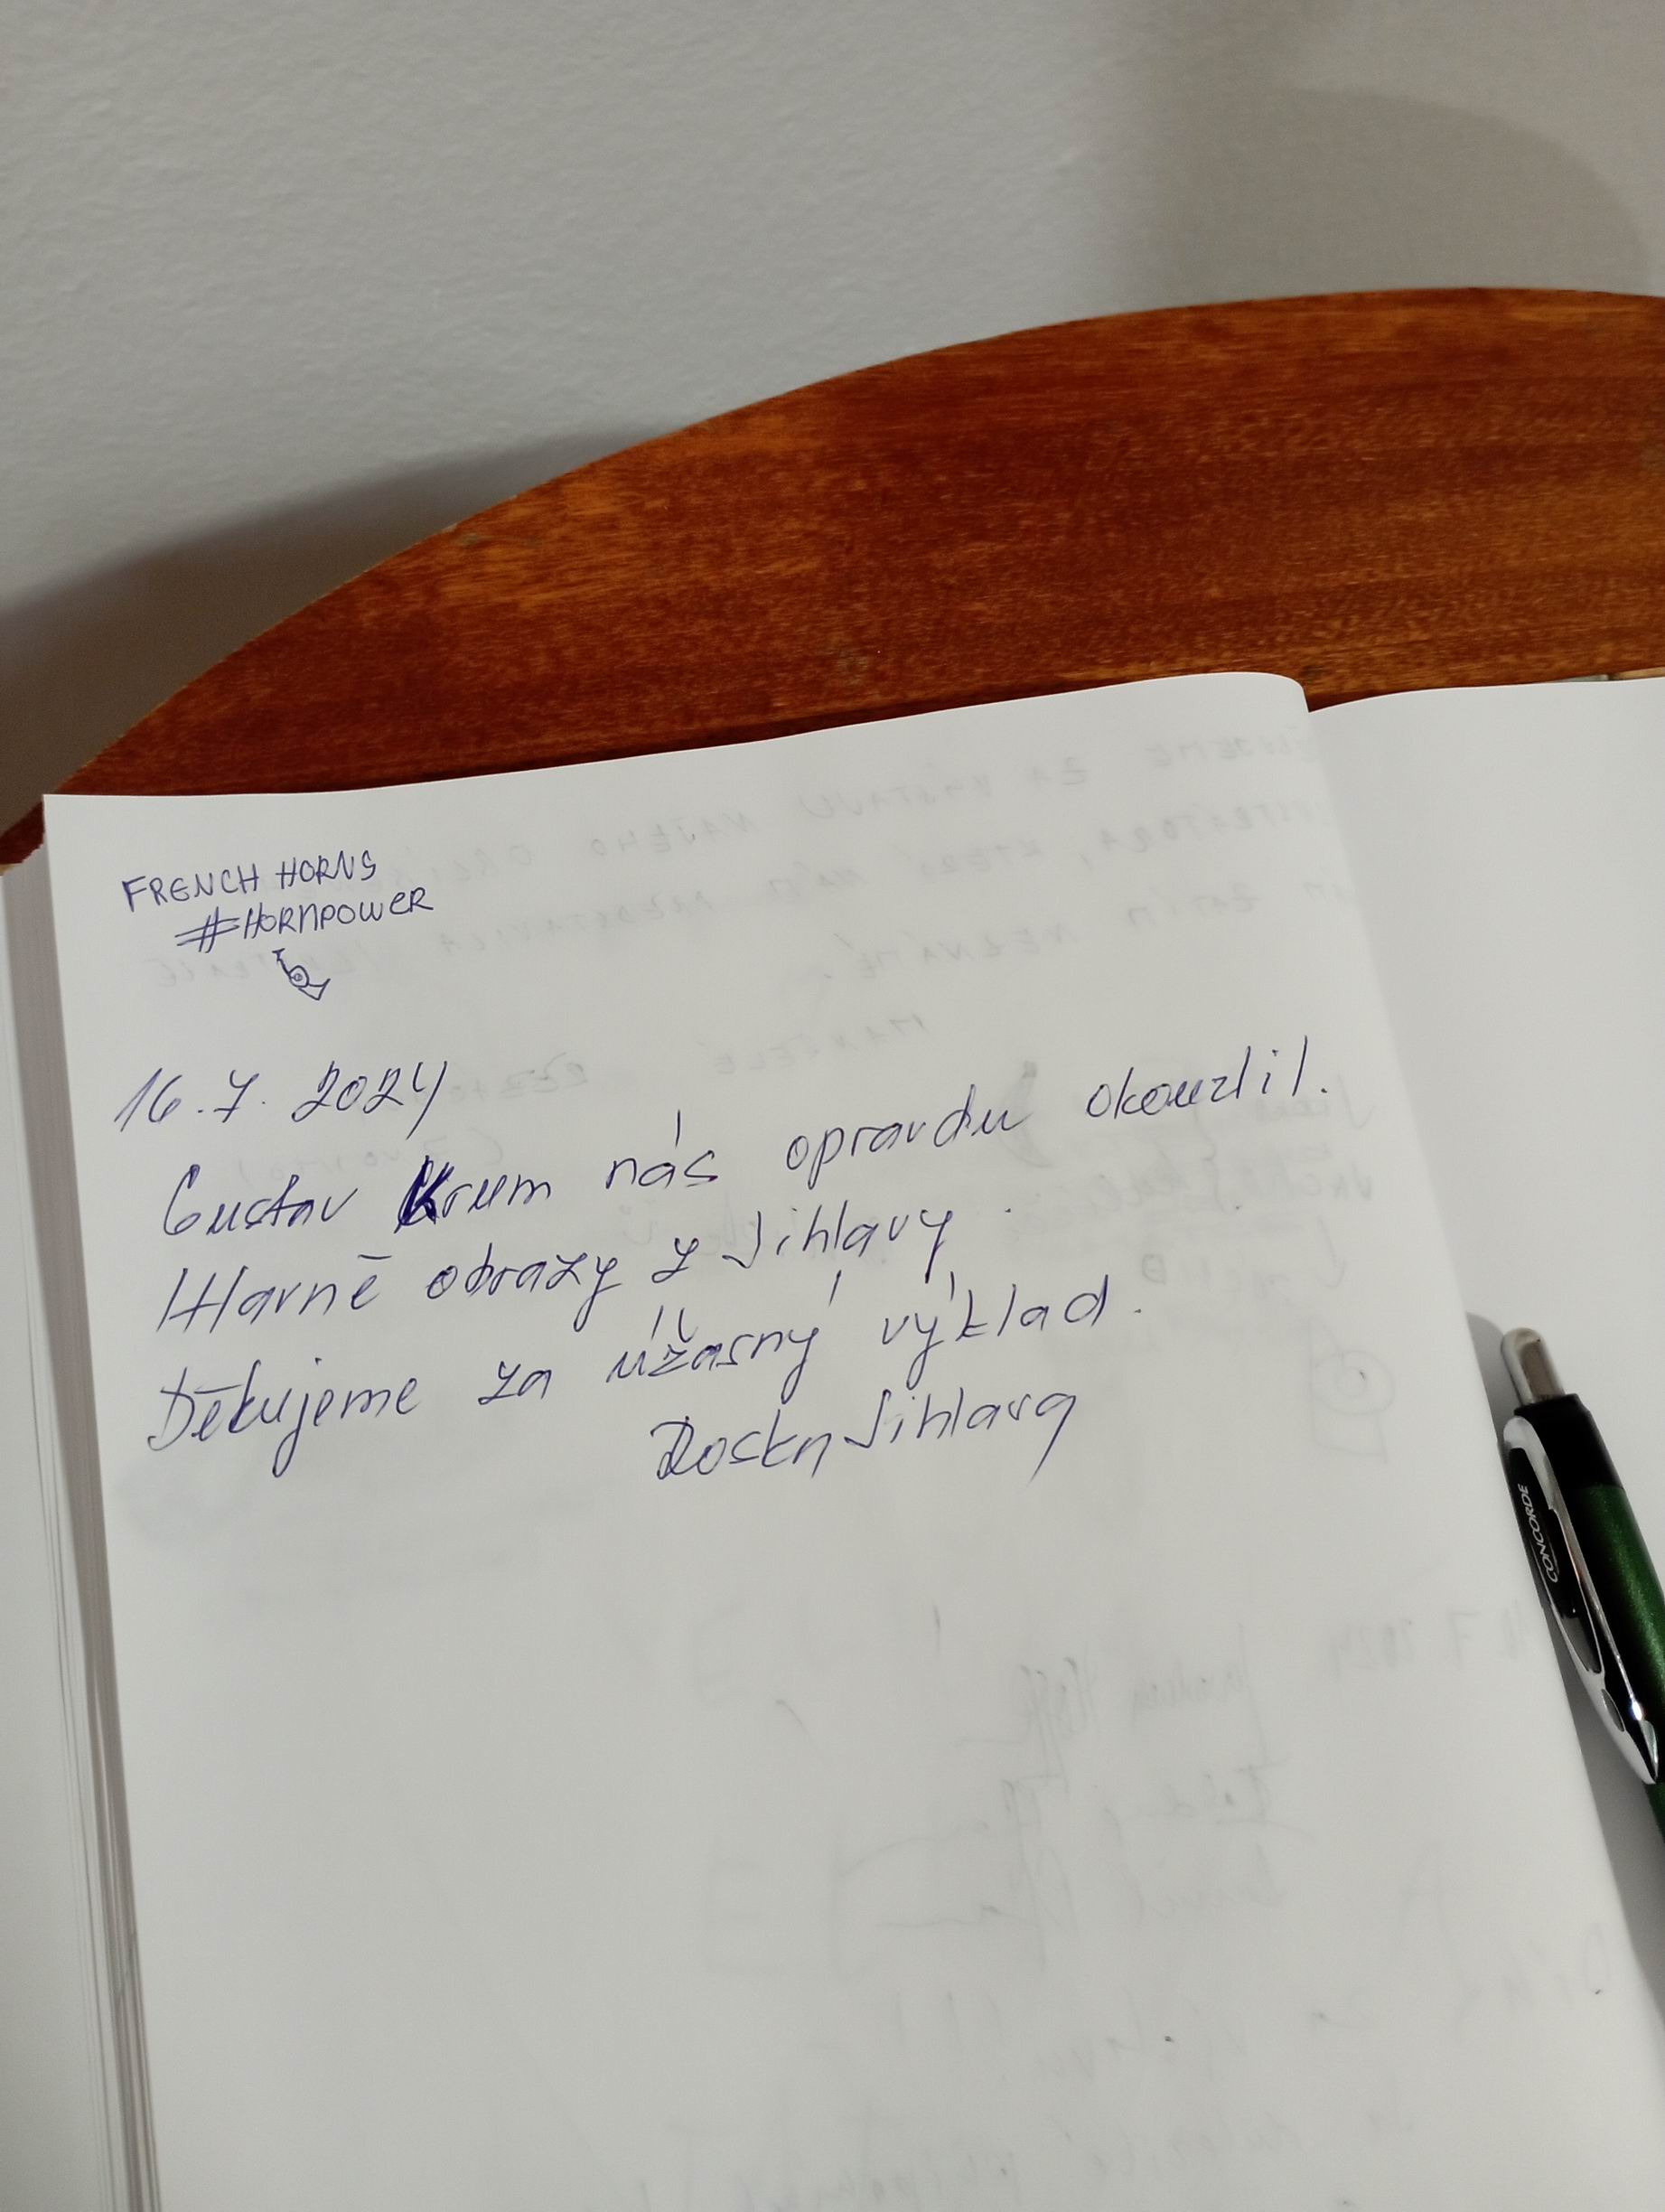 FRENCH HORNS
#HORNPOWER
16.7. 2024
Gustav Krum nás opravdu okouzlil.
Hlavně obrazy z Jihlavy.
Děkujeme za úžasný výklad.
Jihlava
CONCORDE